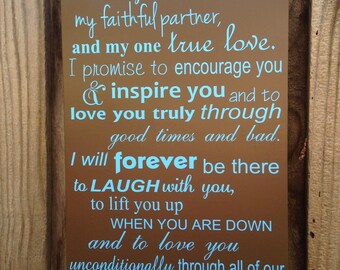 my faithful partner,
and my one true love.
I promise to encourage you
& inspire you and to
love you truly through
good times and bad.
I will forever be there
to LAUGH with you,
to lift you up
WHEN YOU ARE DOWN
and to love you
unconditionally through all of our